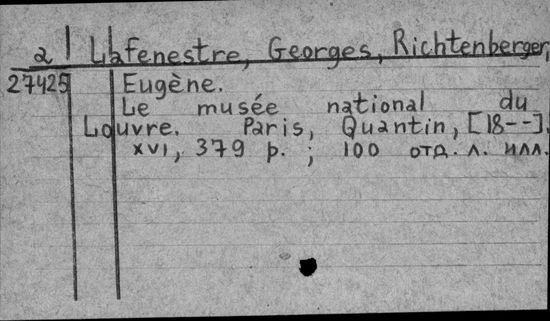 2 Lafenestre, Georges, Richtenberger,
27425 Eugène.
Le musée national du
Louvre. Paris, Quantin, [18--],
xvi, 379 p. ; 100 отд. л. илл.